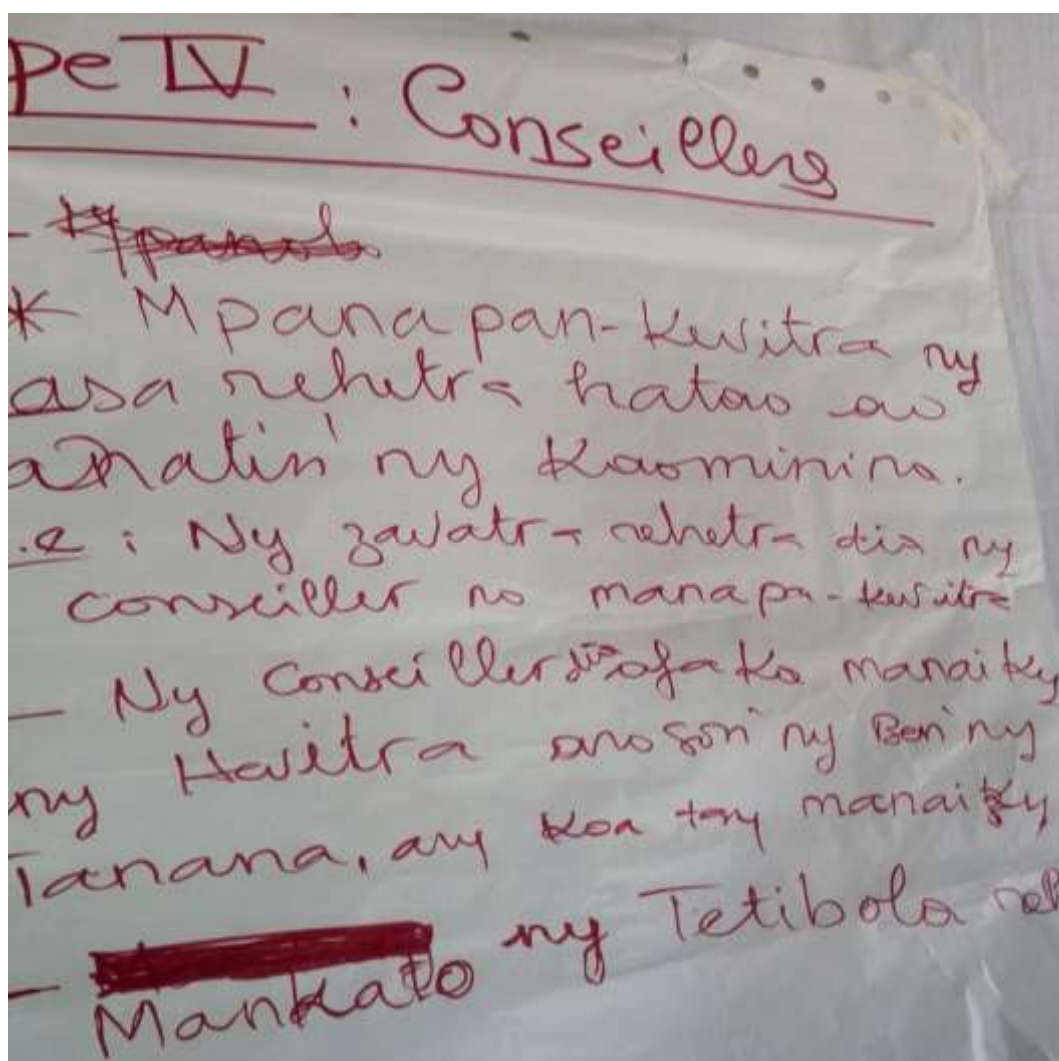 pe IV : Conseillers
-
* Mpanapan-kevitra ny
asa rehetra hatao ao
anatin' ny Kaominina.
.e : Ny zavatra rehetra dia ny
conseiller no manapa-kevitra
- Ny Conseiller dia afaka manaiky
ny Hevitra aroson' ny Ben' ny
Tanana, ary koa tsy manaiky
- Mankato ny Tetibola reh